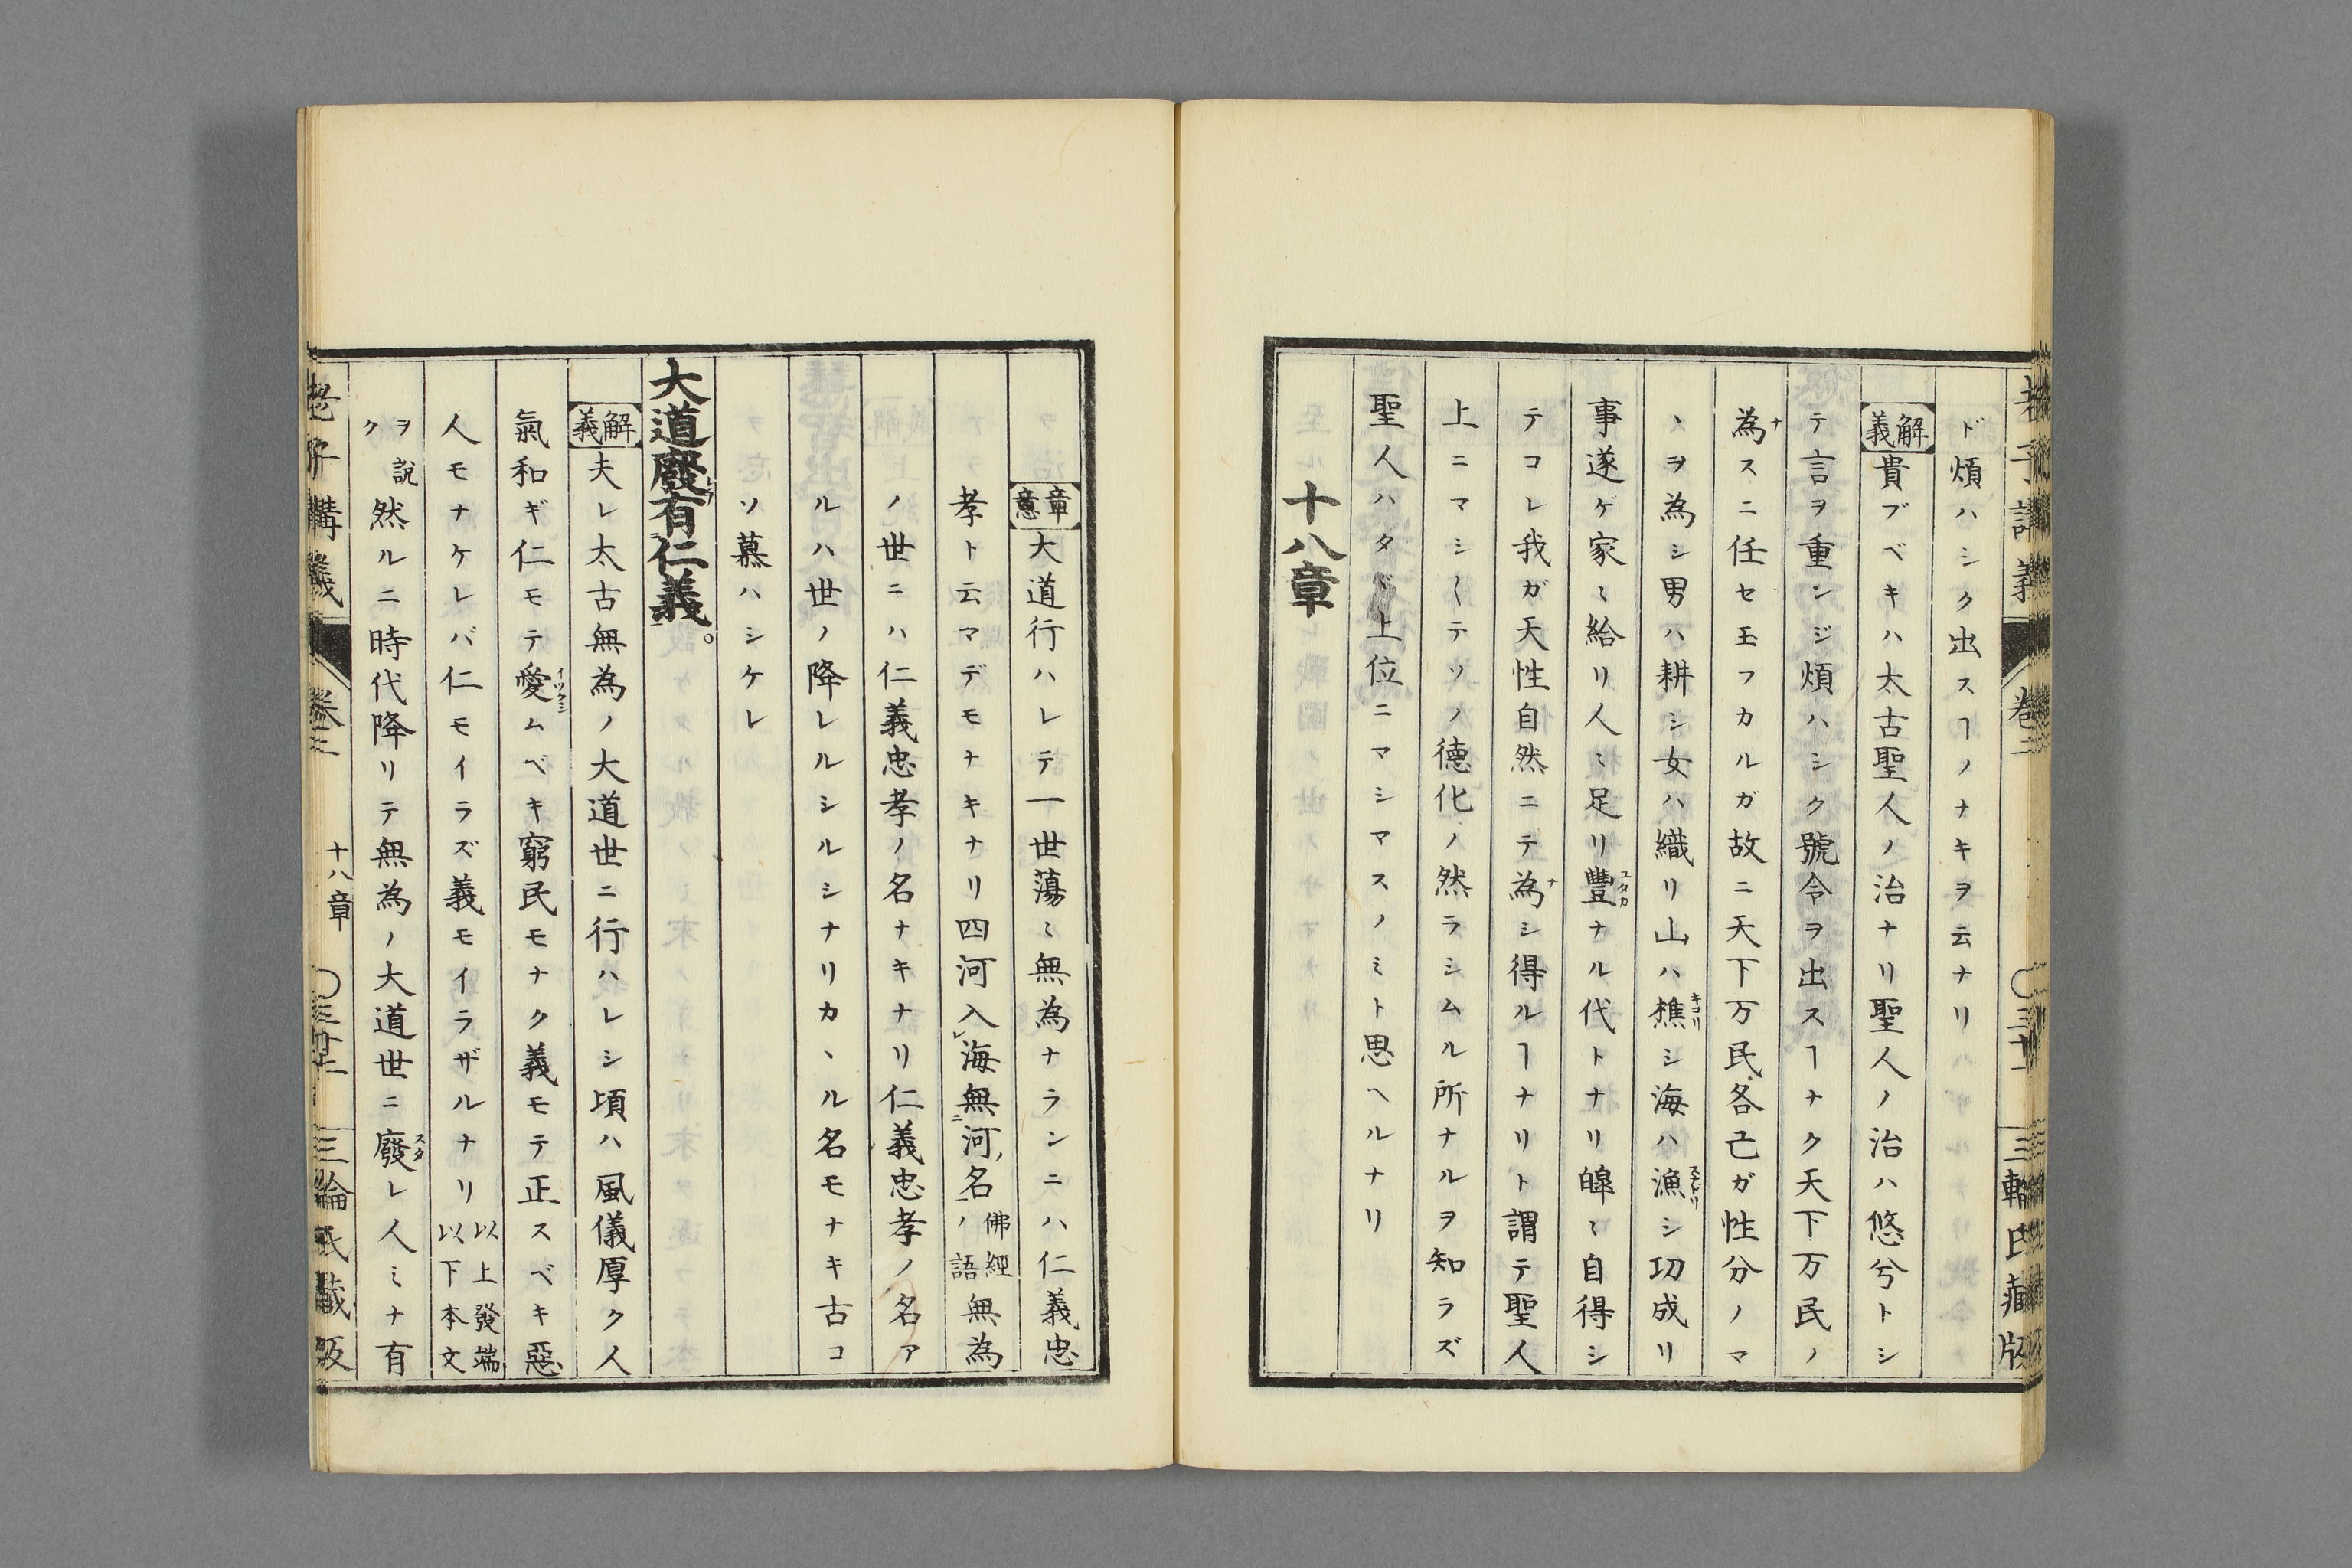 老子講義 卷二 三輪氏藏版
ド煩ハシク出スヿノナキヲ云ナリ
解義 貴ブベキハ太古聖人ノ治ナリ聖人ノ治ハ悠兮トシ
テ言ヲ重ンジ煩ハシク號令ヲ出スヿナク天下万民ノ
為スニ任セ玉フカルガ故ニ天下万民各己ガ性分ノマ
ヽヲ為シ男ハ耕シ女ハ織リ山ハ樵シ海ハ漁シ功成リ
事遂ゲ家〻給リ人〻足リ豐ナル代トナリ皞〻自得シ
テコレ我ガ天性自然ニテ為シ得ルヿナリト謂テ聖人
上ニマシ〱テソノ德化ノ然ラシムル所ナルヲ知ラズ
聖人ハタヾ上位ニマシマスノミト思ヘルナリ
十八章
章意 大道行ハレテ一世蕩〻無為ナランニハ仁義忠
孝ト云マデモナキナリ四河入レ海無二河名一ノ佛經語無為
ノ世ニハ仁義忠孝ノ名ナキナリ仁義忠孝ノ名ア
ルハ世ノ降レルシルシナリカヽル名モナキ古コ
ソ慕ハシケレ
大道廢有仁義。
解義 夫レ太古無為ノ大道世ニ行ハレシ頃ハ風儀厚ク人
氣和ギ仁モテ愛ムベキ窮民モナク義モテ正スベキ惡
人モナケレバ仁モイラズ義モイラザルナリ以上發端以下本文
ヲ說ク然ルニ時代降リテ無為ノ大道世ニ廢レ人ミナ有
老子講義 卷二 十八章 三輪氏藏版